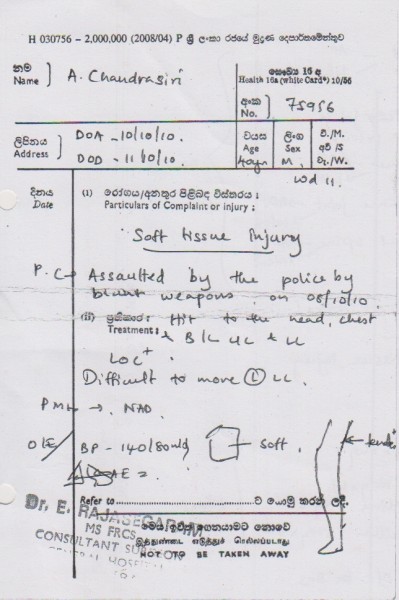 H 030756 – 2,000,000 (2008/04) P ශ්‍රී ලංකා රජයේ මුද්‍රණ දෙපාර්තමේන්තුව
නම
Name
A. Chandrasiri
සෞඛ්‍ය 16 අ
Health 16a (white Card) 10/56
අංක
No.
75956
ලිපිනය
Address
DOA - 10/10/10.
DOD - 11/10/10.
වයස
Age
ලිංග
Sex
M,
වි./M.
අවි/S
වැ./W.
Wd 11.
දිනය
Date
(i) රෝගය/අනතුර පිළිබඳ විස්තරය :
Particulars of Complaint or injury :
Soft tissue Injury
P.C → Assaulted by the police by
blunt weapons. on 08/10/10.
(ii) ප්‍රතිකාර : Hit to the head, chest
Treatment :
& B/L UL & LL
LOC+.
Difficult to move (L) LL.
PMH → NAD
O/E
BP - 140/80
soft.
AE =
Refer to ........ ට යොමු කරන ලදී.
Dr. E. RAJASEGARAM
MS FRCS
CONSULTANT SURGEON
GENERAL HOSPITAL
මෙය ඉවත් ගෙනයාමට නොවේ
இத்துண்டை எடுத்துச் செல்லப்படாது
NOT TO BE TAKEN AWAY